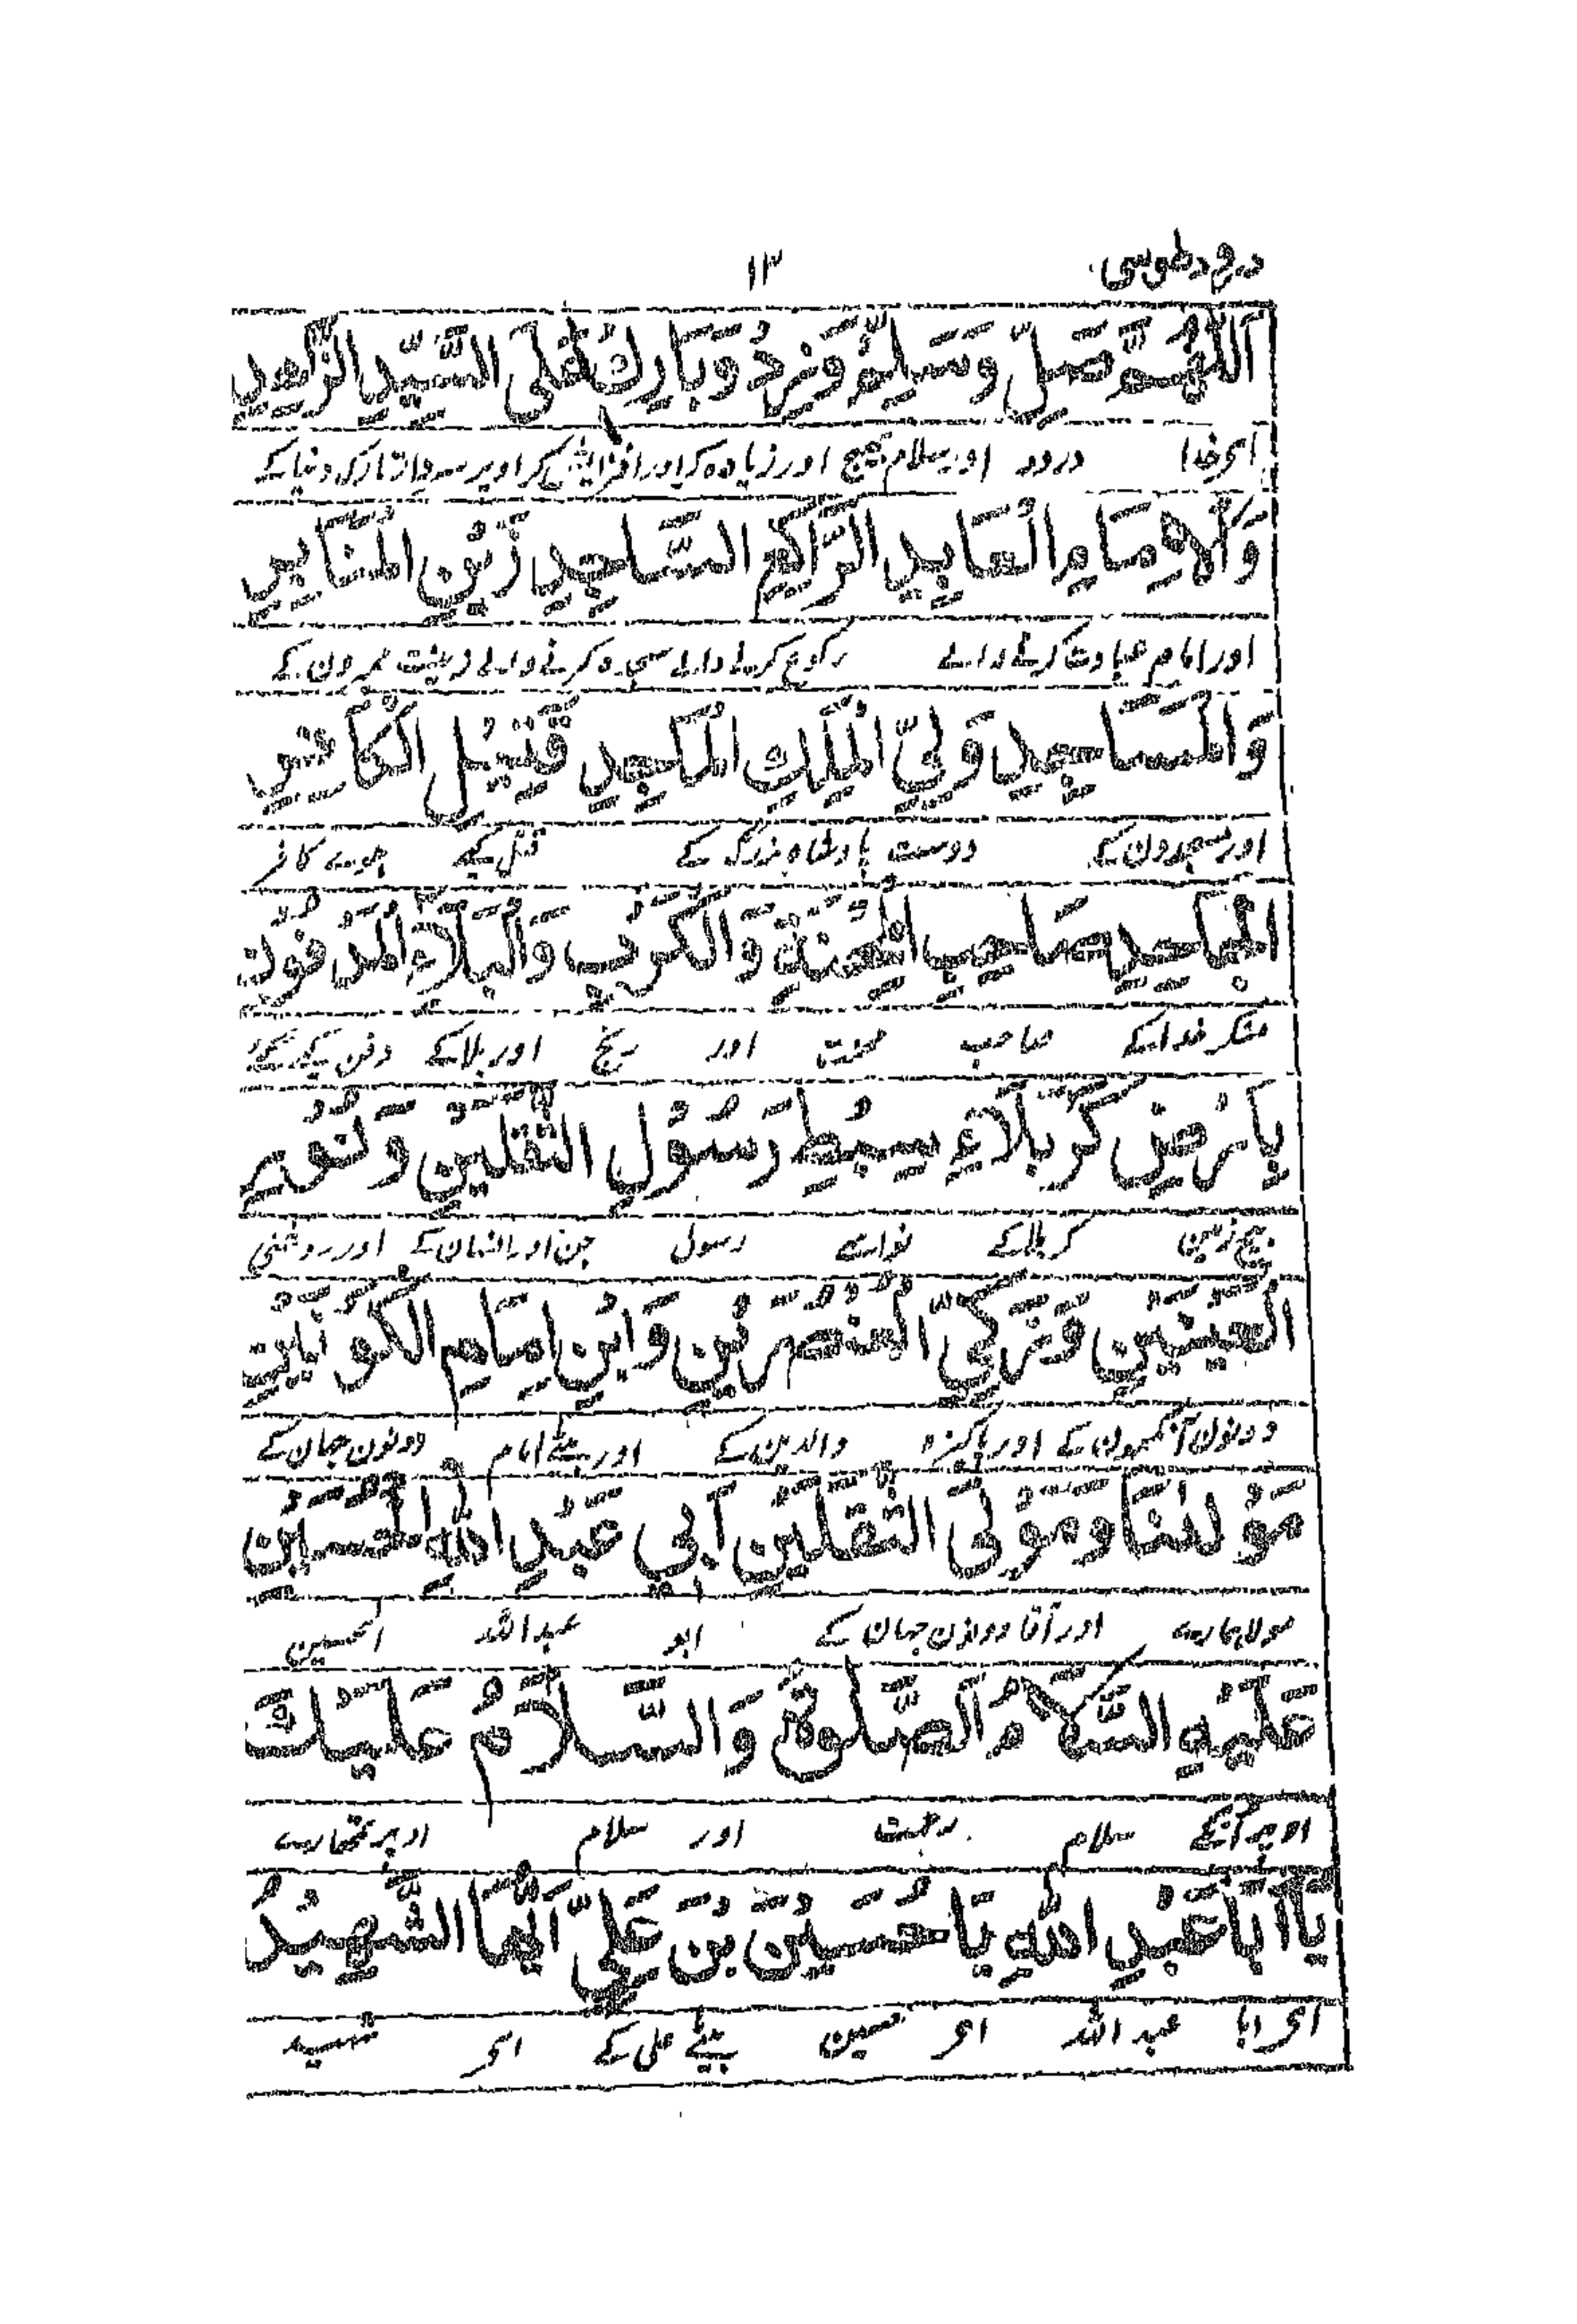 درود طوسی ۱۳
اَللّٰهُمَّ صَلِّ وَسَلِّمْ وَزِدْ وَبَارِكْ عَلَى السَّيِّدِ الزَّاهِدِ
ای خدا درود اور سلام بھیج اور زیادہ کر اور افزایش کر اوپر سردار تارک دنیا کے
وَالْاِمَامِ الْعَابِدِ الرَّاكِعِ السَّاجِدِ زَيْنِ الْمَنَابِرِ
اور امام عبادت کرنے والے رکوع کرنے والے سجدہ کرنے والے زینت ممبرون کے
وَالْمَسَاجِدِ وَلِيِّ الْمَلِكِ الْمَاجِدِ قَتِيْلِ الْكَافِرِ
اور مسجدون کے دوست بادشاہ بزرگ کے قتل کیے ہوے کافر
الْجَاحِدِ صَاحِبِ الْمِحْنَةِ وَالْكَرْبِ وَالْبَلَاۤءِ الْمَدْفُوْنِ
منکر خدا کے صاحب محنت اور رنج اور بلا کے دفن کیے گئے
بِاَرْضِ كَرْبَلَاۤءِ سِبْطِ رَسُوْلِ الثَّقَلَيْنِ وَنُوْرِ
بیچ زمین کربلا کے نواسے رسول جن اور انسان کے اور روشنی
الْعَيْنَيْنِ وَزَكِيِّ الْعُنْصُرَيْنِ وَابْنِ اِمَامِ الْكَوْنَيْنِ
دونون آنکھون کے اور پاکیزہ والدین کے اور بیٹے امام دونون جہان کے
مَوْلٰنَا وَمَوْلَى الثَّقَلَيْنِ اَبِيْ عَبْدِ اللّٰهِ الْحُسَيْنِ
مولا ہمارے اور آقا دونون جہان کے ابو عبد اللہ الحسین
عَلَيْهِ السَّلَامُ اَلصَّلٰوةُ وَالسَّلَامُ عَلَيْكَ
اوپر آنکے سلام رحمت اور سلام اوپر تمھارے
يَا اَبَا عَبْدِ اللّٰهِ يَا حُسَيْنَ بْنَ عَلِيٍّ اَيُّهَا الشَّهِيْدُ
ای ابا عبد اللہ ای حسین بیٹے علی کے ای شہید